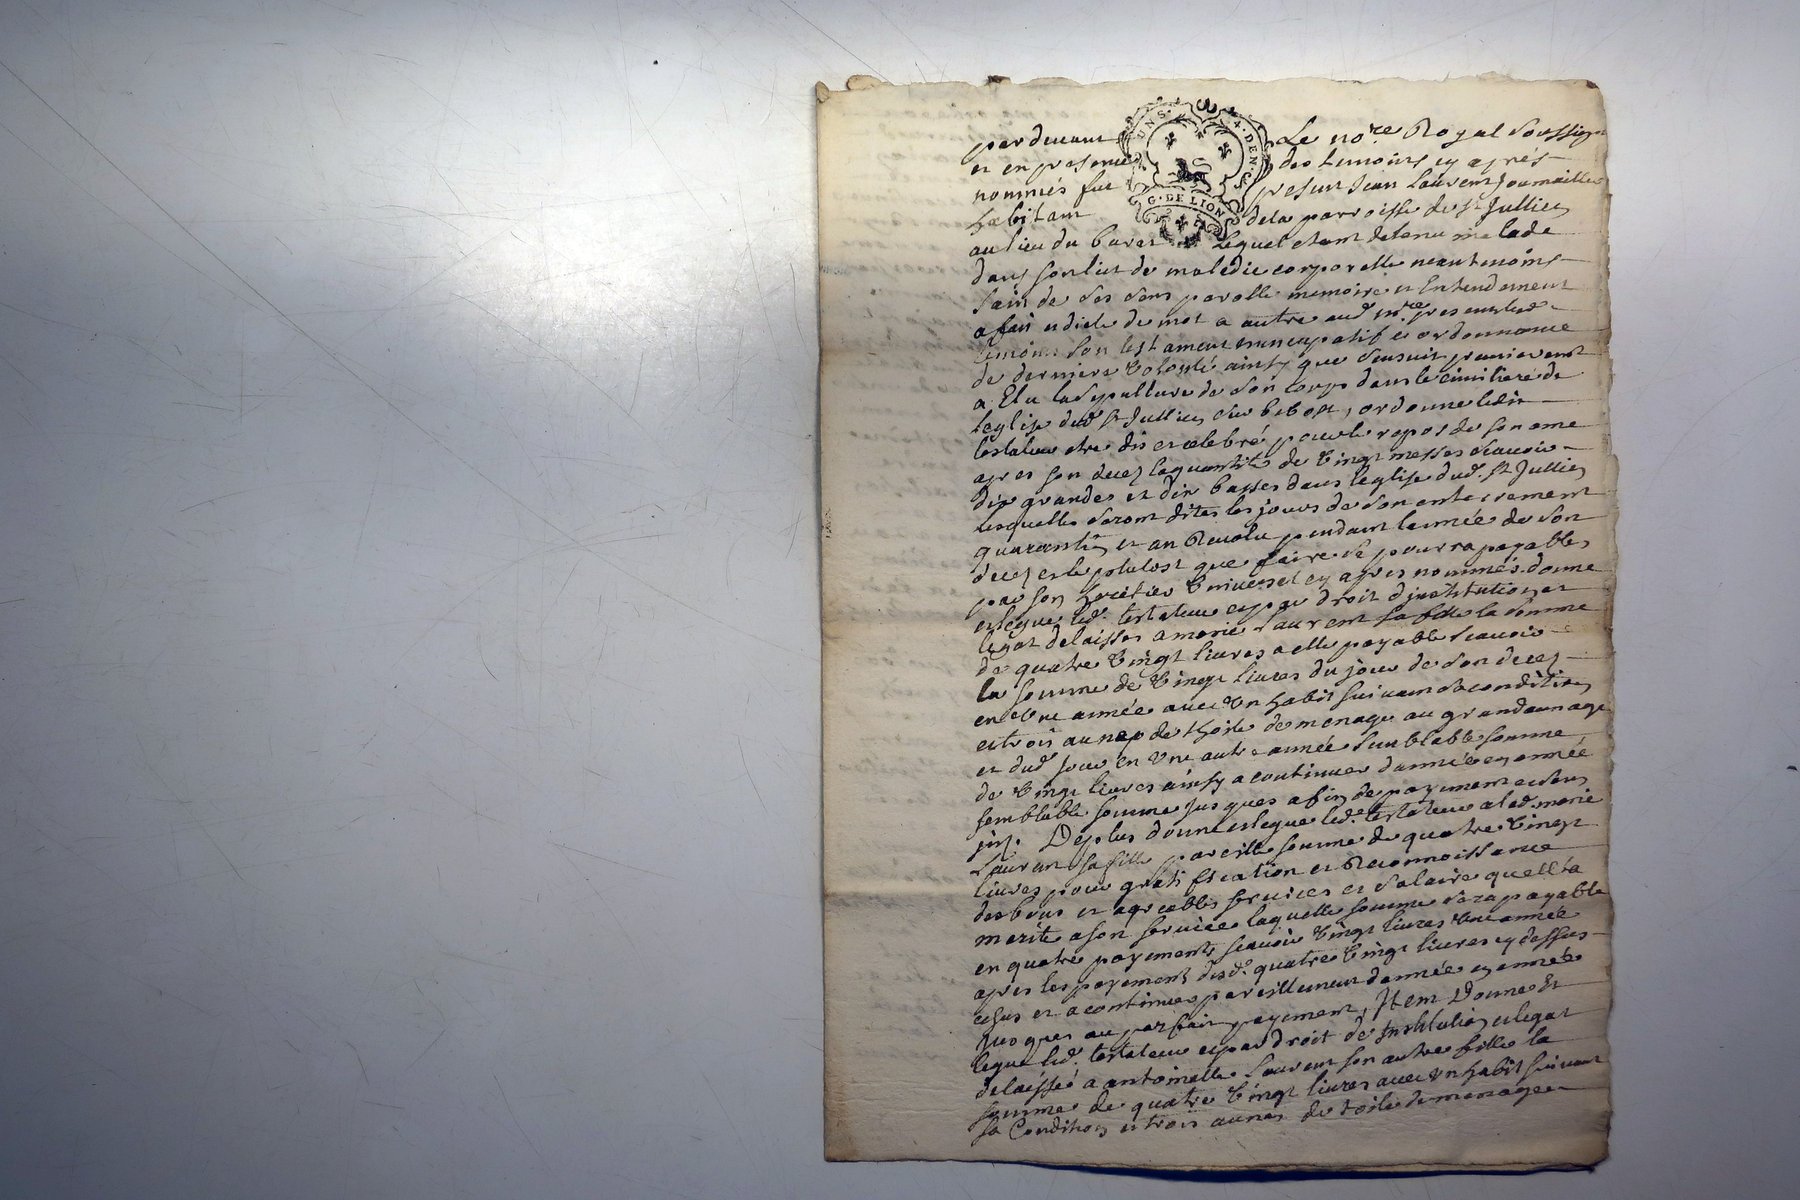 pardevant Le no.re Royal soussigné
et en presence des temoins cy aprés
nommés fut present Jean Laurent Journaillier
habitant dela parroisse de St Jullien
UNS. 4. DEN.
G. DE LION
au lieu du buret lequel etant detenu malade
dans son lit de maledie corporelle neautmoins
sain de ses sens parolle memoire et Entendement
a fait et dicté de mot a autre aud. n.re presents les
temoins son testament nuncupatif et ordonnance
de derniere Volonté ainsy que sensuit premierement
a Elu la sepulture de son corps dans le cimitiere de
leglise dud. St Jullien , ordonne ledit
testateur etre dit et celebré pour le repos de son ame
apres son decez la quantité de Vingt messes scavoir
dix grandes et dix basses dans leglise dud. St Jullien
lesquelles seront dites les jours de son enterrement
quarantin et an Revolu pendant lannée de son
decez et le plutost que faire se pourra payables
par son heritier Universel cy apres nommés. donne
et legue led. testateur et par droit dinstitution et
legat delaisser a marie Laurent sa fille la somme
de quatre Vingt livres a elle payable scavoir
la somme de Vingt livres du jour de son decez
en Une année avec Un habit suivant sa condition
et trois aunes de thoile de menage au grand aunage
et dud. jour en Une autre année semblable somme
de Vingt livres ainsy a continuer dannée en année
semblable somme jusques a fin de payement
Deplus donne et legue led. testateur a lad. marie
Laurent sa fille pareille somme de quatre Vingt
livres pour gratification et Reconnoissance
des bons et agreables services et salaire quell'a
merité a son service laquelle somme sera payable
en quatre payements scavoir Vingt livres Une année
apres les payements desd. quatre Vingt livres cy dessus
et a continuer pareillement dannée en année
jusques au parfait payement, Item Donne Et
legue led. testateur et par droit de Institution et legat
delaissé a antoinette Laurent son autre fille la
somme de quatre Vingt livres avec Un habit suivant
sa Condition et trois aunes de toile de menage